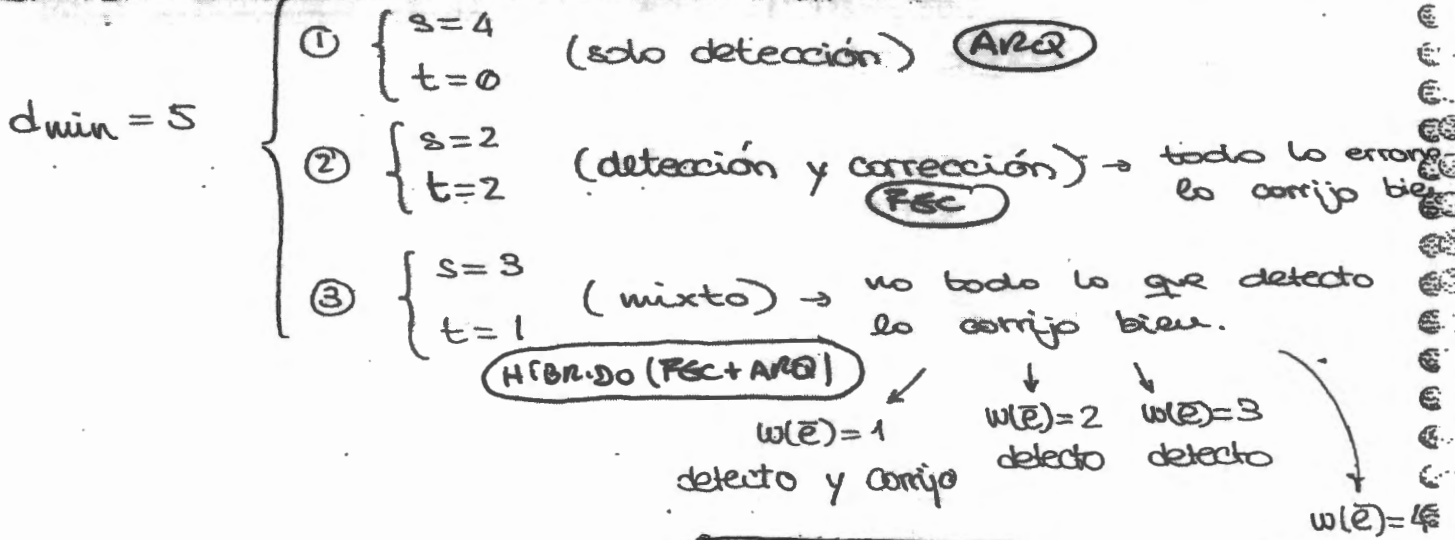 dmin = 5
① s=4
t=0
(solo detección) ARQ
② s=2
t=2
(detección y corrección) → todo lo errone
lo corrijo bien
FEC
③ s=3
t=1
(mixto) → no todo lo que detecto
lo corrijo bien.
HÍBRIDO (FEC+ARQ)
w(e̅)=1
detecto y corrijo
w(e̅)=2
detecto
w(e̅)=3
detecto
w(e̅)=4